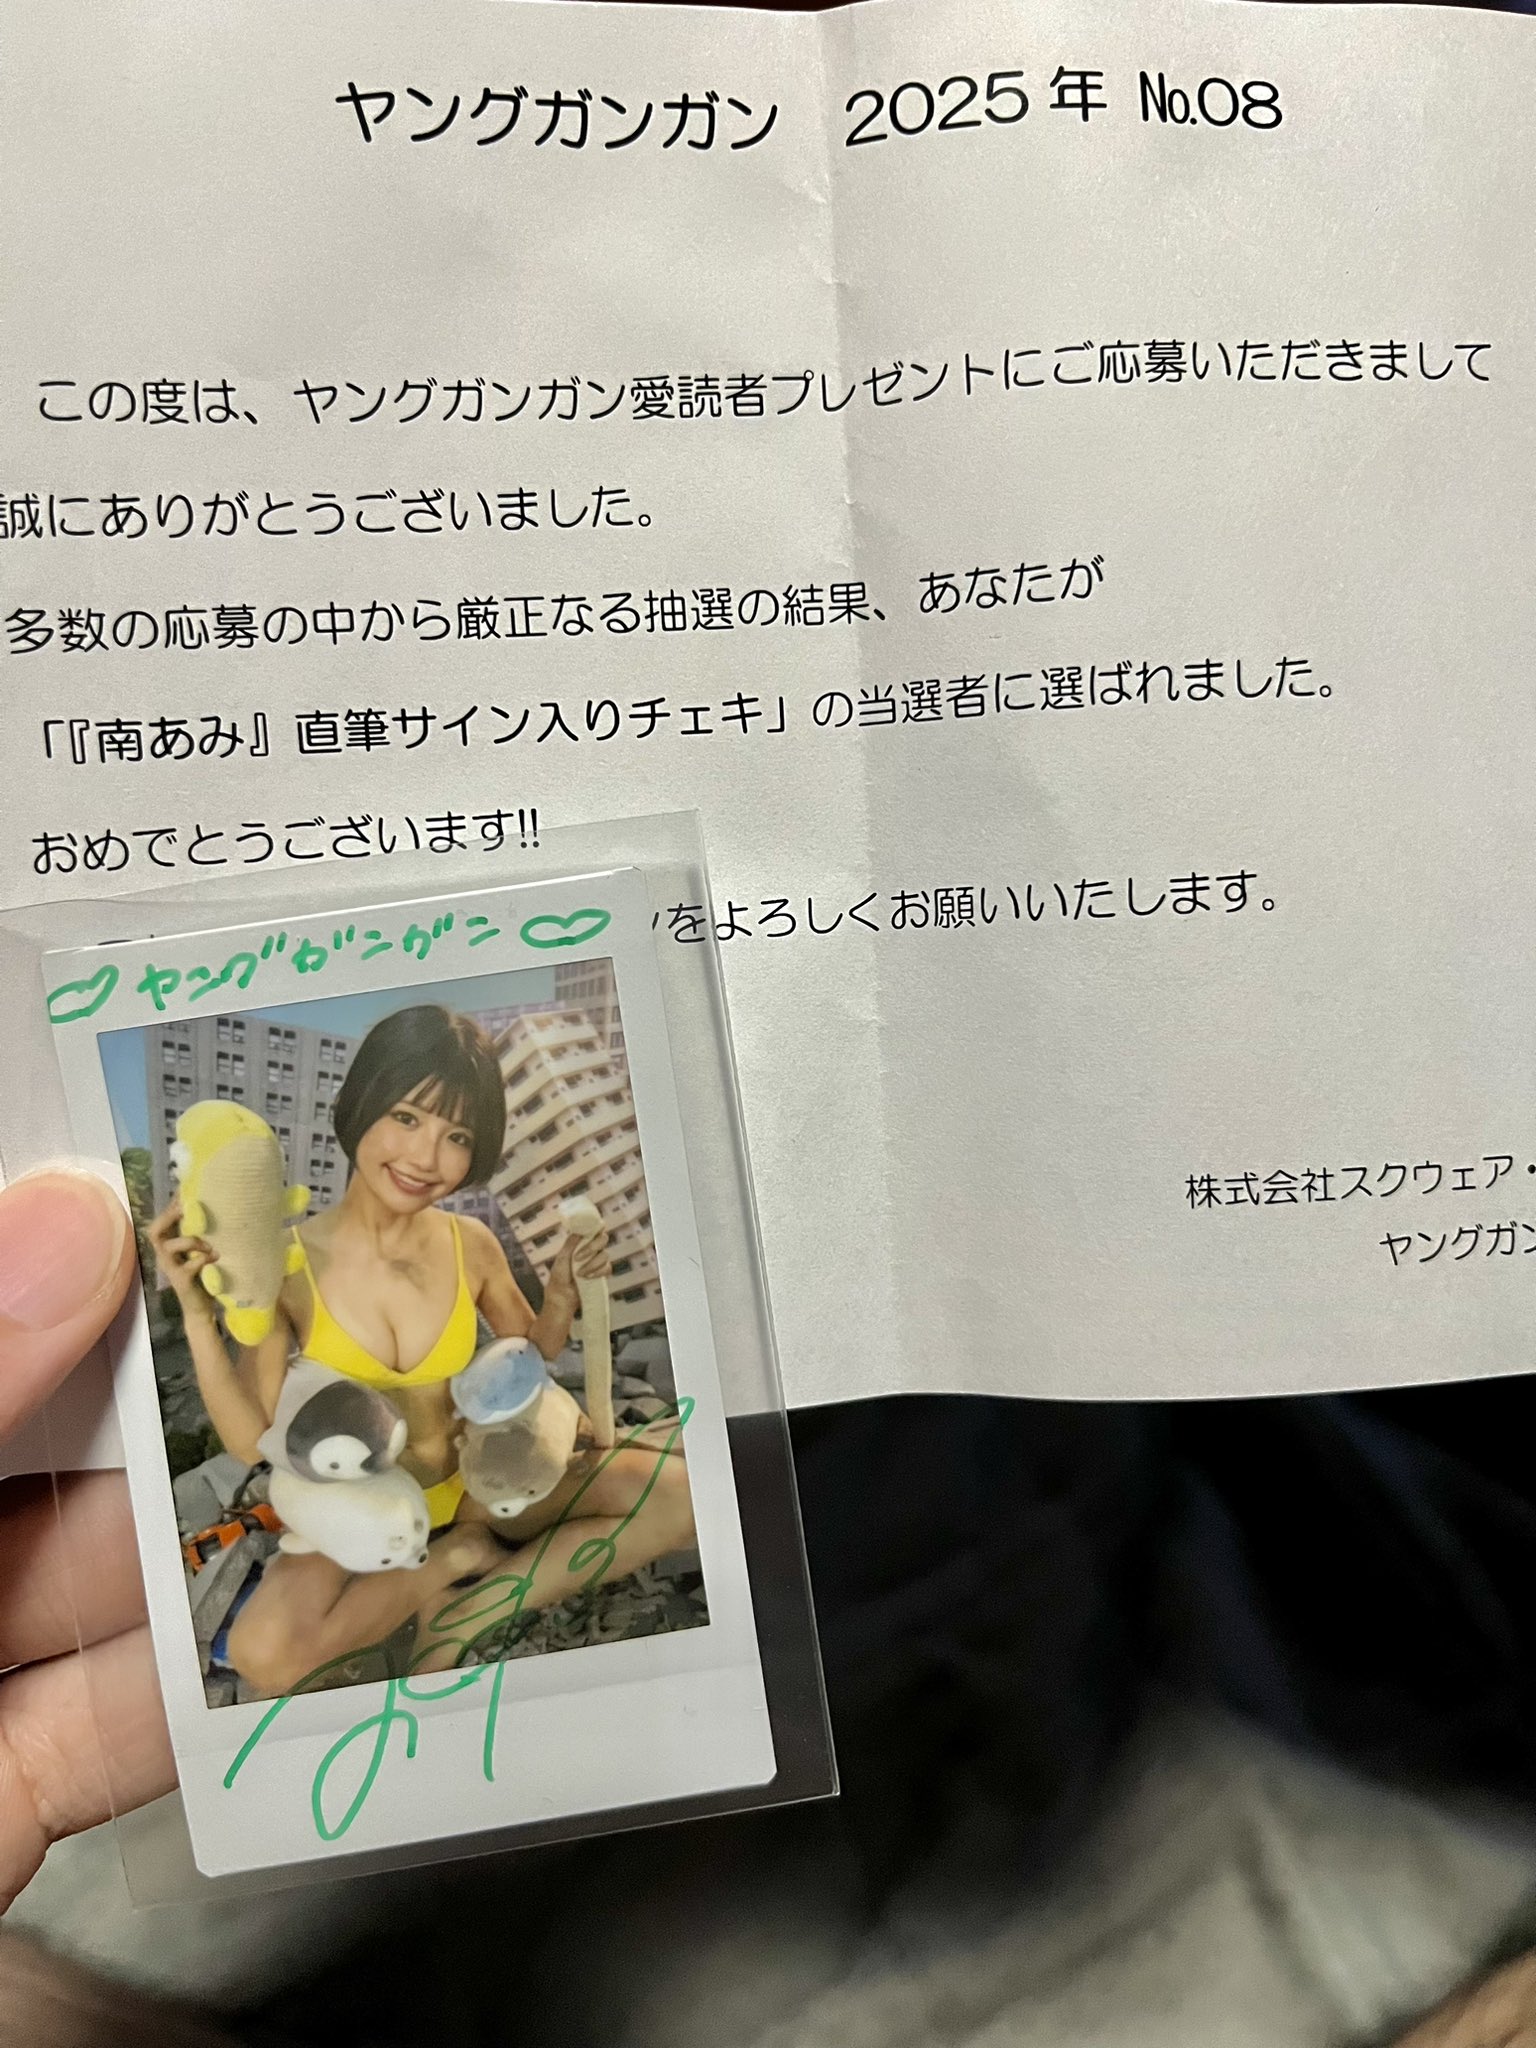 ヤングガンガン 2025年 №08
この度は、ヤングガンガン愛読者プレゼントにご応募いただきまして
誠にありがとうございました。
多数の応募の中から厳正なる抽選の結果、あなたが
「『南あみ』直筆サイン入りチェキ」の当選者に選ばれました。
おめでとうございます!!
をよろしくお願いいたします。
株式会社スクウェア・
ヤングガン
ヤングガンガン